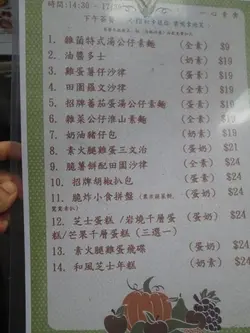 時間:14:30-17:30 一心素食
下午茶餐
1. 雜菌特式湯公仔素麵 (全素) $9
2. 油醬多士 (奶素) $19
3. 雞蛋薯仔沙律 (蛋素) $19
4. 田園羅文沙律 (全素) $19
5. 招牌蕃茄蛋湯公仔素麵 (蛋素) $19
6. 雜菜公仔淮山素麵 (全素) $19
7. 奶油豬仔包 (奶素) $19
8. 素火腿雞蛋三文治 (蛋奶) $19
9. 脆薯餅配田園沙律 (全素) $24
10. 招牌胡椒扒包 (蛋素) $24
11. 脆炸小食拼盤 (蛋奶) $24
12. 芝士蛋糕/岩燒千層蛋 (蛋奶) $24
糕/芒果千層蛋糕(三選一)
13. 素火腿雞蛋飛碟 (蛋奶) $24
14. 和風芝士年糕 (蛋奶) $24